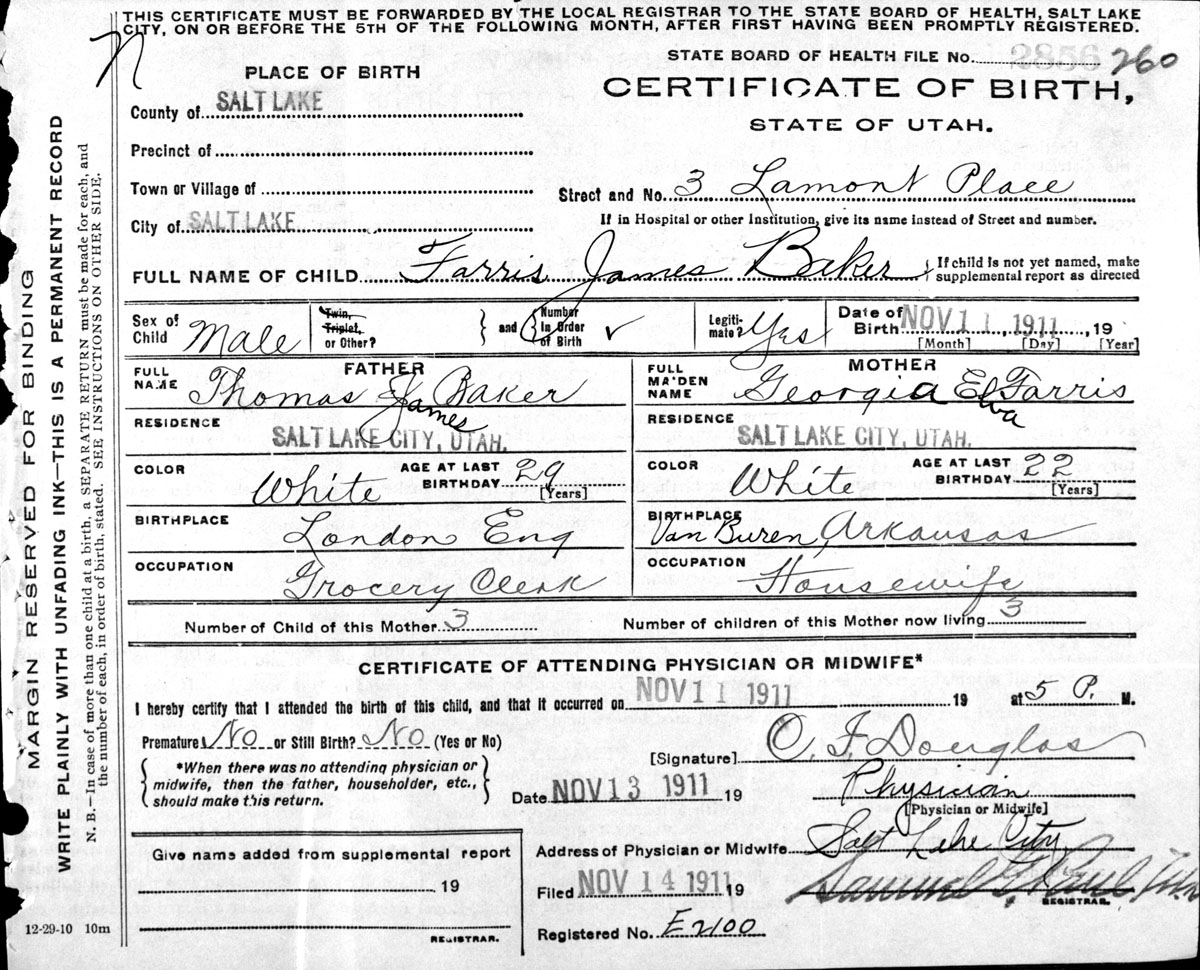 THIS CERTIFICATE MUST BE FORWARDED BY THE LOCAL REGISTRAR TO THE STATE BOARD OF HEALTH, SALT LAKE
CITY, ON OR BEFORE THE 5TH OF THE FOLLOWING MONTH, AFTER FIRST HAVING BEEN PROMPTLY REGISTERED.
N
MARGIN RESERVED FOR BINDING
WRITE PLAINLY WITH UNFADING INK—THIS IS A PERMANENT RECORD
N. B.—In case of more than one child at a birth, a SEPARATE RETURN must be made for each, and
the number of each, in order of birth, stated. SEE INSTRUCTIONS ON OTHER SIDE.
STATE BOARD OF HEALTH FILE No. 2856 260
PLACE OF BIRTH
CERTIFICATE OF BIRTH,
STATE OF UTAH.
County of SALT LAKE
Precinct of
Town or Village of
Street and No. 3 Lamont Place
City of SALT LAKE
If in Hospital or other Institution, give its name instead of Street and number.
FULL NAME OF CHILD Farris James Baker
If child is not yet named, make
supplemental report as directed
Sex of Child Male
Twin, Triplet, or Other?
and Number In Order of Birth ✓
Legitimate? Yes
Date of Birth NOV 11 1911, 19
[Month] [Day] [Year]
FATHER
FULL NAME Thomas J Baker
James
RESIDENCE
SALT LAKE CITY, UTAH.
COLOR White
AGE AT LAST BIRTHDAY 29
[Years]
BIRTHPLACE
London Eng
OCCUPATION
Grocery Clerk
MOTHER
FULL MAIDEN NAME Georgia E Farris
Elva
RESIDENCE
SALT LAKE CITY, UTAH.
COLOR White
AGE AT LAST BIRTHDAY 22
[Years]
BIRTHPLACE
Van Buren, Arkansas
OCCUPATION
Housewife
Number of Child of this Mother 3
Number of children of this Mother now living 3
CERTIFICATE OF ATTENDING PHYSICIAN OR MIDWIFE*
I hereby certify that I attended the birth of this child, and that it occurred on NOV 11 1911 19 at 5 P. M.
Premature No or Still Birth? No (Yes or No)
[Signature] C. F. Douglas
*When there was no attending physician or
midwife, then the father, householder, etc.,
should make this return.
Date NOV 13 1911 19
Physician
[Physician or Midwife]
Give name added from supplemental report
19
REGISTRAR.
Address of Physician or Midwife Salt Lake City
Filed NOV 14 1911 19
REGISTRAR.
Registered No. E2100
12-29-10 10m